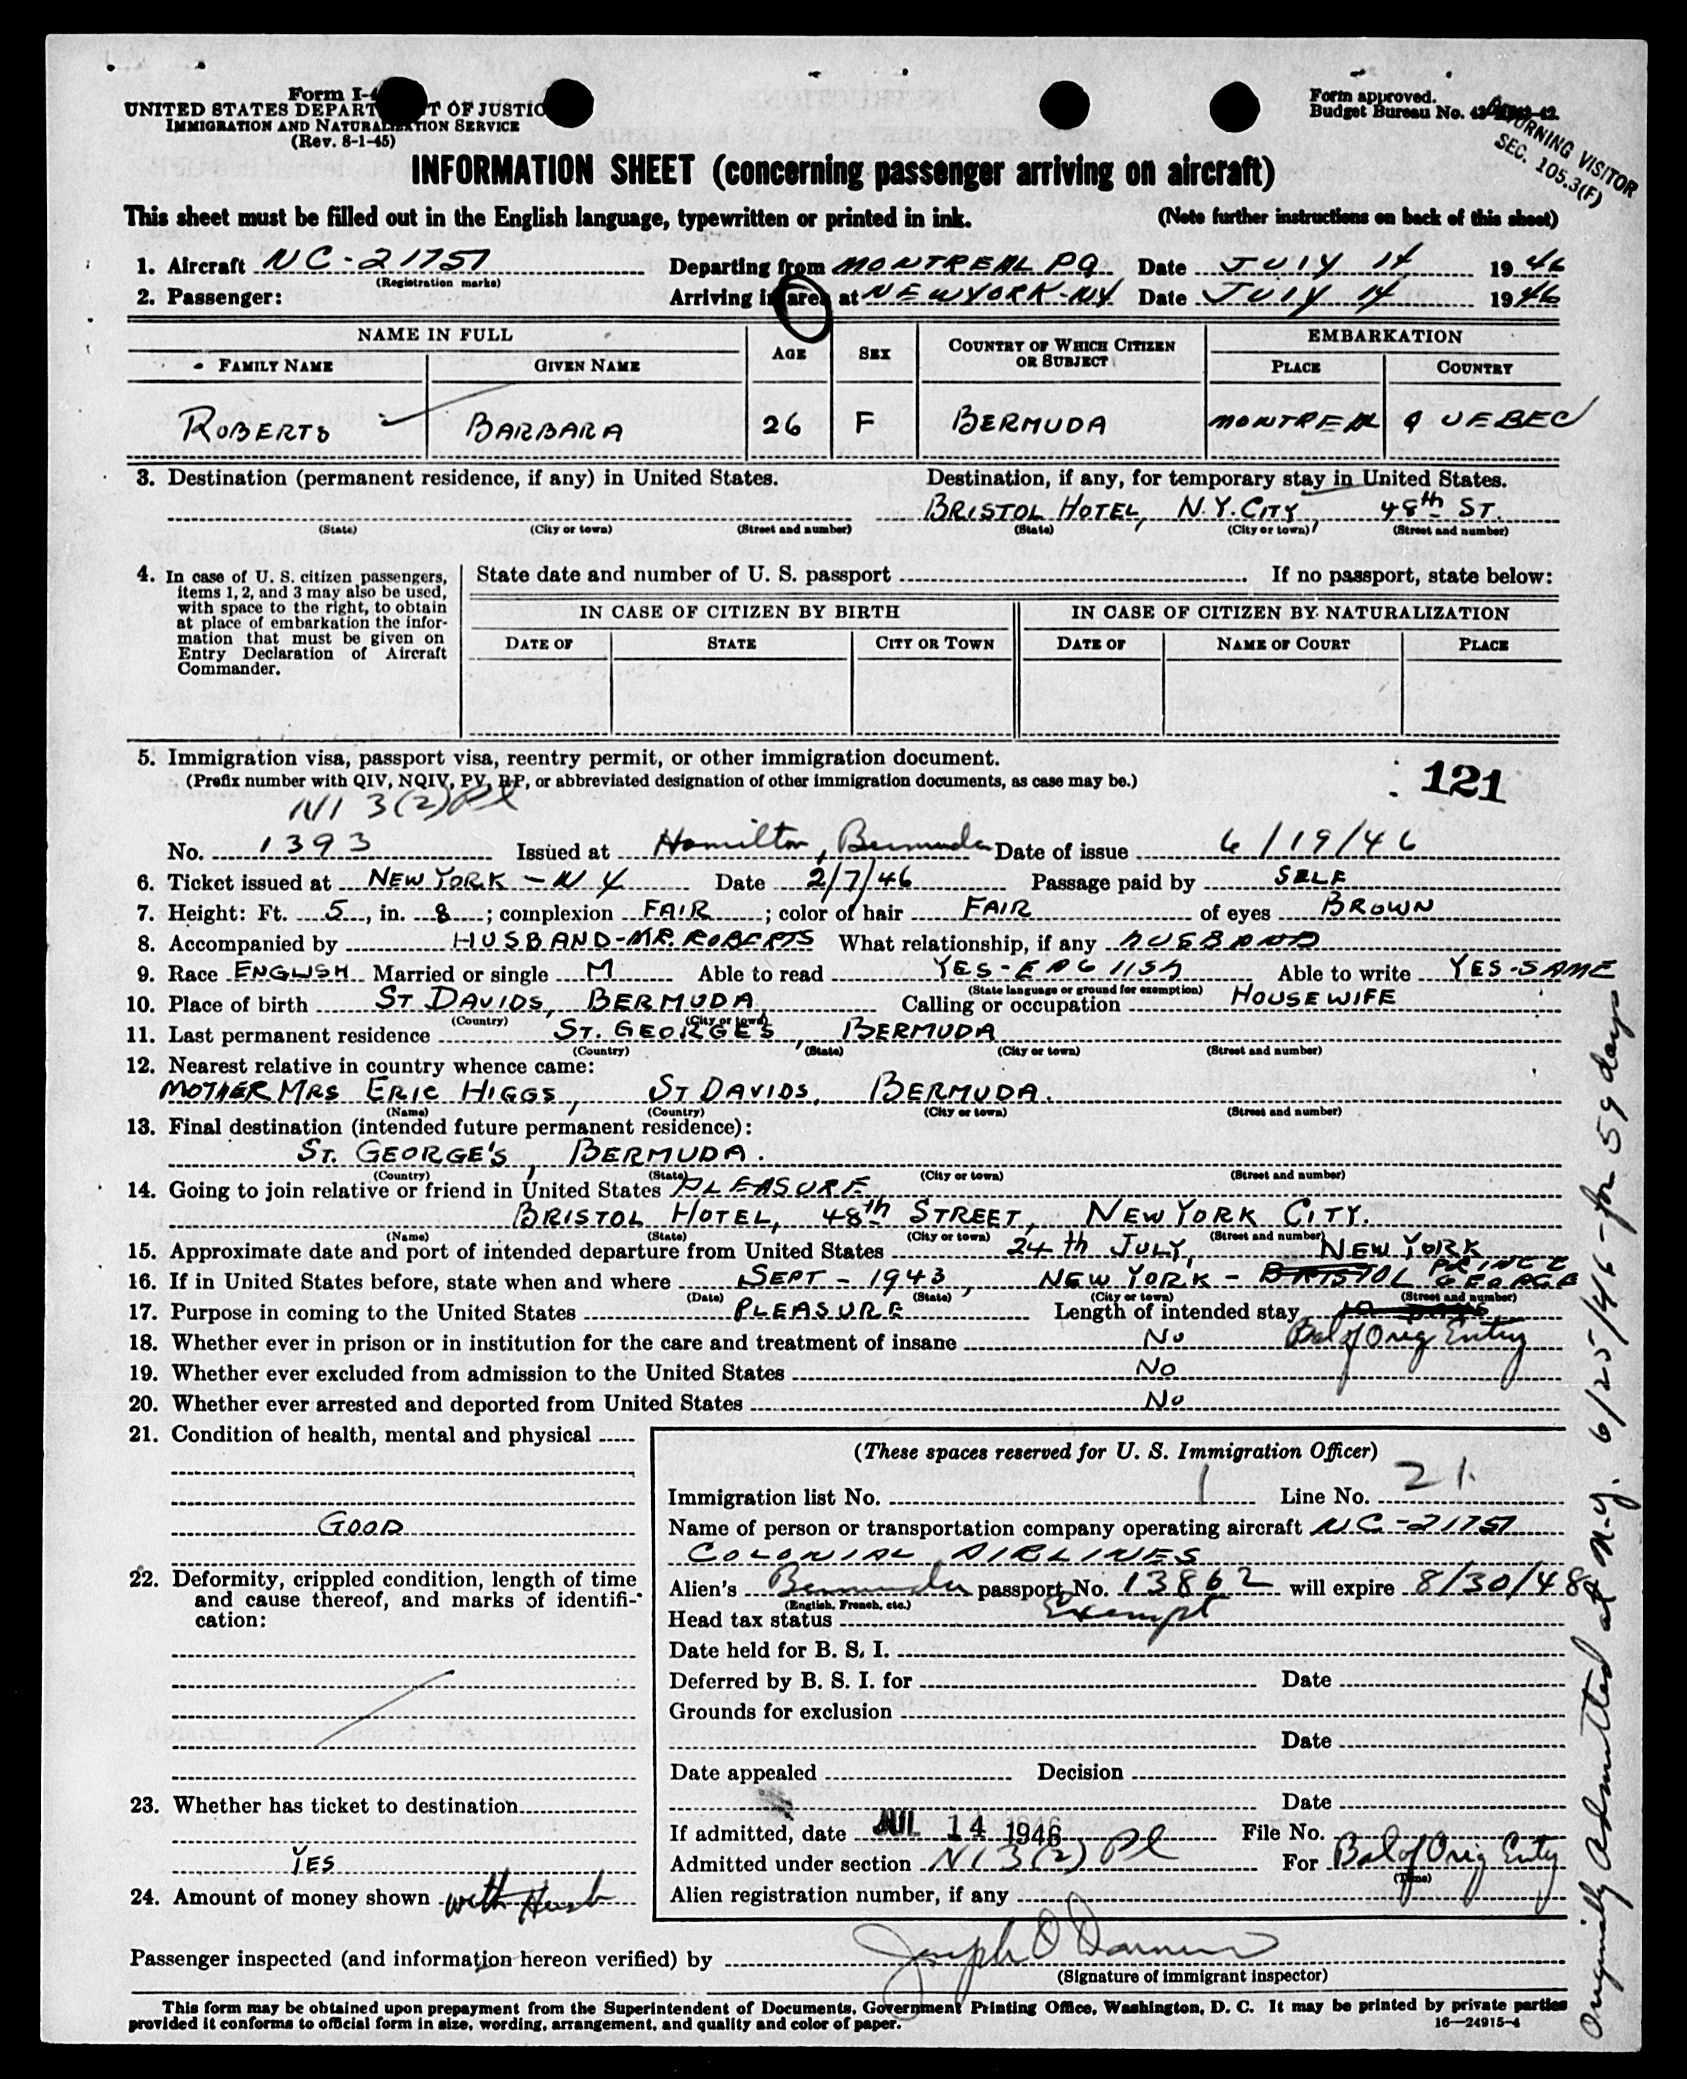 Form I-4
UNITED STATES DEPART T OF JUSTIC
IMMIGRATION AND NATURALIZATION SERVICE
(Rev. 8-1-45)
Form approved.
Budget Bureau No. 43-
RETURNING VISITOR
SEC. 105.3(F)
INFORMATION SHEET (concerning passenger arriving on aircraft)
This sheet must be filled out in the English language, typewritten or printed in ink. (Note further instructions on back of this sheet)
1. Aircraft NC-21757 Departing from MONTREAL PQ Date JULY 14 1946
(Registration marks)
2. Passenger: Arriving in area at NEW YORK-NY Date JULY 14 1946
NAME IN FULL AGE SEX COUNTRY OF WHICH CITIZEN OR SUBJECT EMBARKATION
FAMILY NAME GIVEN NAME PLACE COUNTRY
ROBERTS BARBARA 26 F BERMUDA MONTREAL QUEBEC
3. Destination (permanent residence, if any) in United States. Destination, if any, for temporary stay in United States.
BRISTOL HOTEL, N.Y. CITY, 48th ST.
(State) (City or town) (Street and number) (State) (City or town) (Street and number)
4. In case of U. S. citizen passengers, items 1, 2, and 3 may also be used, with space to the right, to obtain at place of embarkation the information that must be given on Entry Declaration of Aircraft Commander.
State date and number of U. S. passport If no passport, state below:
IN CASE OF CITIZEN BY BIRTH IN CASE OF CITIZEN BY NATURALIZATION
DATE OF STATE CITY OR TOWN DATE OF NAME OF COURT PLACE
5. Immigration visa, passport visa, reentry permit, or other immigration document.
(Prefix number with QIV, NQIV, PV, RP, or abbreviated designation of other immigration documents, as case may be.)
121
NI 3(2) Pl
No. 1393 Issued at Hamilton, Bermuda Date of issue 6/19/46
6. Ticket issued at NEW YORK - N Y Date 2/7/46 Passage paid by SELF
7. Height: Ft. 5, in. 8; complexion FAIR; color of hair FAIR of eyes BROWN
8. Accompanied by HUSBAND-MR. ROBERTS What relationship, if any HUSBAND
9. Race ENGLISH Married or single M Able to read YES-ENGLISH Able to write YES-SAME
(State language or ground for exemption)
10. Place of birth ST DAVIDS, BERMUDA Calling or occupation HOUSEWIFE
(Country) (City or town)
11. Last permanent residence ST. GEORGE'S, BERMUDA
(Country) (State) (City or town) (Street and number)
12. Nearest relative in country whence came:
MOTHER MRS ERIC HIGGS, ST DAVIDS, BERMUDA.
(Name) (Country) (City or town) (Street and number)
13. Final destination (intended future permanent residence):
ST. GEORGE'S, BERMUDA.
(Country) (State) (City or town) (Street and number)
14. Going to join relative or friend in United States PLEASURE
BRISTOL HOTEL, 48th STREET, NEW YORK CITY.
(Name) (State) (City or town) (Street and number)
15. Approximate date and port of intended departure from United States 24th JULY, NEW YORK
16. If in United States before, state when and where SEPT - 1943, NEW YORK - BRISTOL PRINCE GEORGE
(Date) (State) (City or town) (Street and number)
17. Purpose in coming to the United States PLEASURE Length of intended stay 10 DAYS
Bal of Orig Entry
18. Whether ever in prison or in institution for the care and treatment of insane No
19. Whether ever excluded from admission to the United States No
20. Whether ever arrested and deported from United States No
21. Condition of health, mental and physical
GOOD
22. Deformity, crippled condition, length of time and cause thereof, and marks of identification:
23. Whether has ticket to destination
YES
24. Amount of money shown with Husb
(These spaces reserved for U. S. Immigration Officer)
Immigration list No. 1 Line No. 21
Name of person or transportation company operating aircraft NC-21757
COLONIAL AIRLINES
Alien's Bermuda passport No. 13862 will expire 8/30/48
(English, French, etc.)
Head tax status Exempt
Date held for B. S. I.
Deferred by B. S. I. for Date
Grounds for exclusion
Date
Date appealed Decision
Date
If admitted, date JUL 14 1946 File No.
Admitted under section NI 3(2) Pl For Bal of Orig Entry
(Time)
Alien registration number, if any
Passenger inspected (and information hereon verified) by
(Signature of immigrant inspector)
This form may be obtained upon prepayment from the Superintendent of Documents, Government Printing Office, Washington, D. C. It may be printed by private parties
provided it conforms to official form in size, wording, arrangement, and quality and color of paper.
16—24915-4
Originally Admitted at N.Y. 6/25/46 - for 59 days